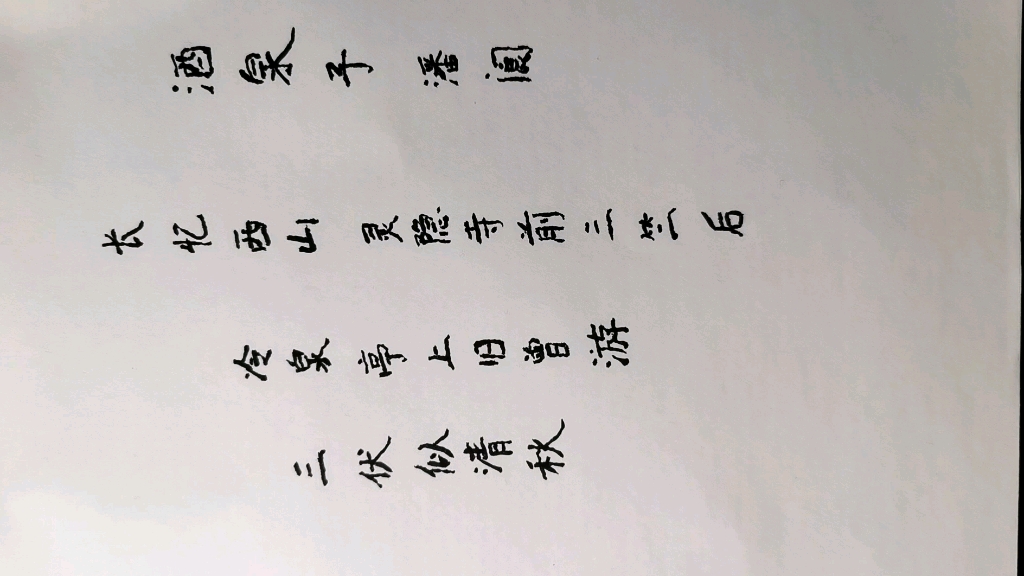 酒泉子 潘阆
长忆西山 灵隐寺前三竺后
冷泉亭上旧曾游
三伏似清秋